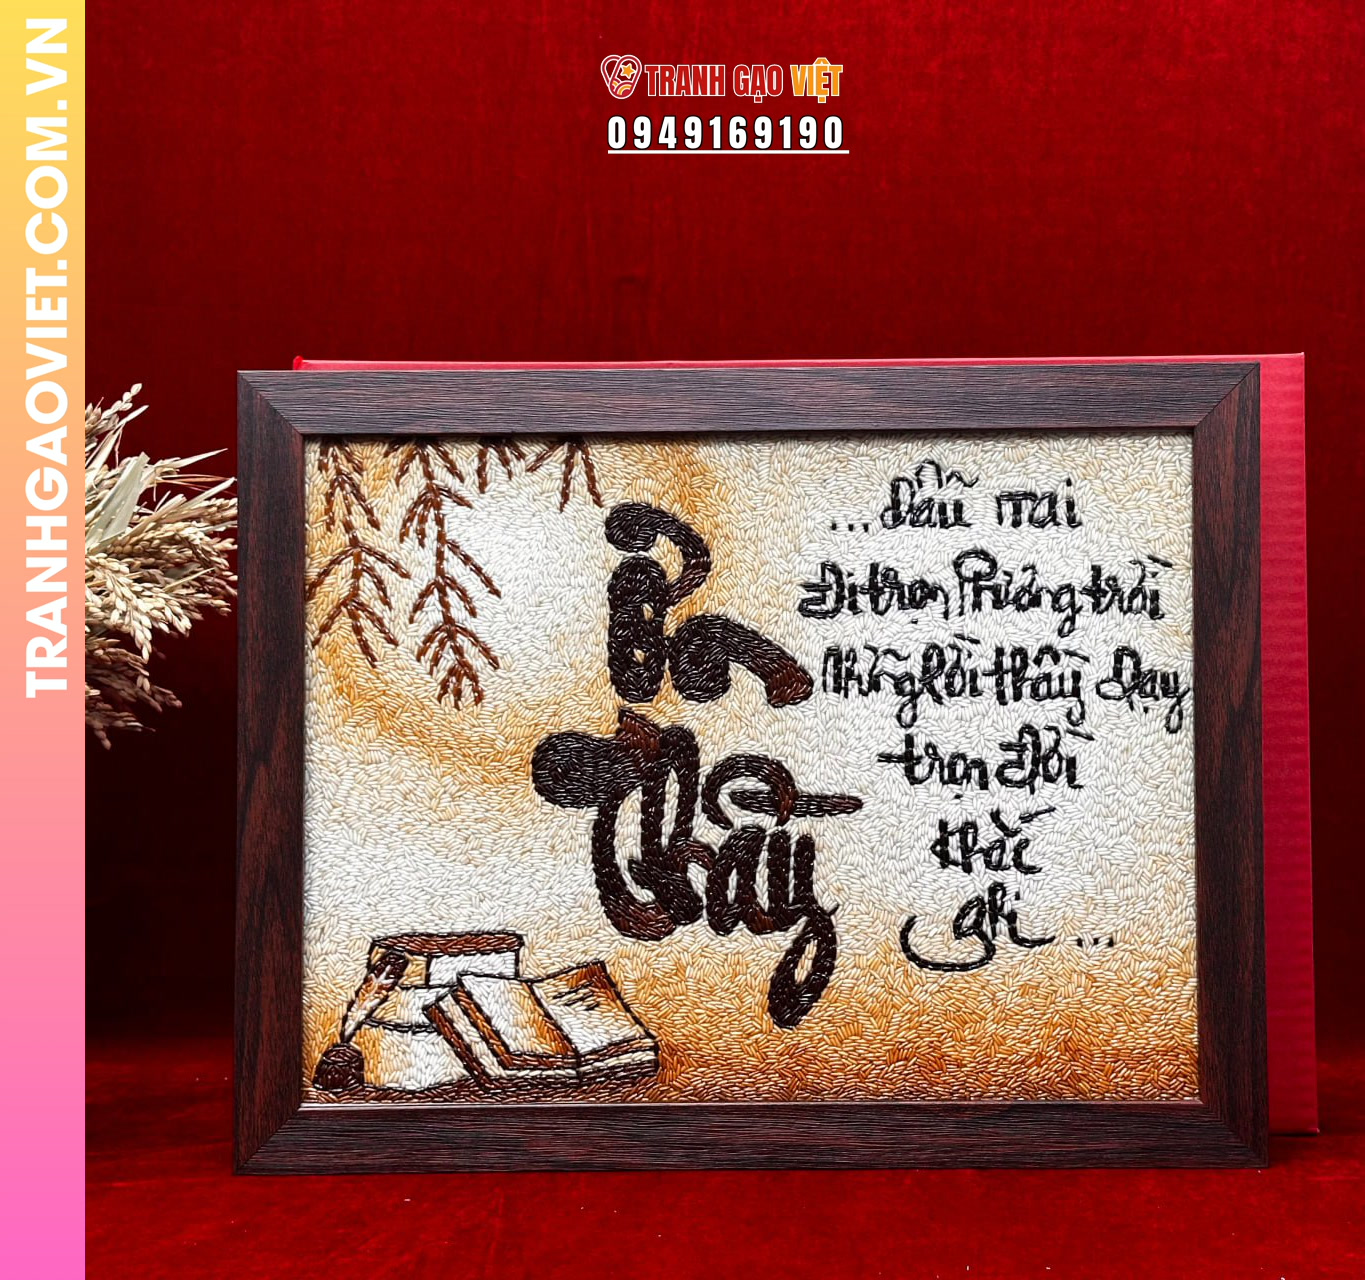 TRANHGAOVIET.COM.VN
TRANH GẠO VIỆT
0949169190
Ơn
thầy
...Dẫu mai
Đi trọn Phương trời
Những lời thầy Dạy
trọn Đời
khắc
ghi...